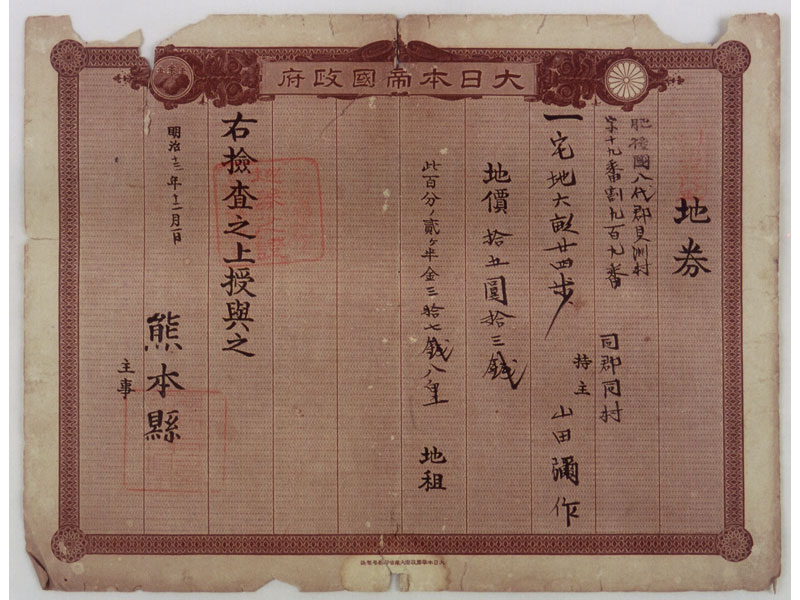 大日本帝國政府
地券
肥後國八代郡貝洲村
字十九番割九百九番
同郡同村
持主 山田彌作
一宅地六畝廿四歩
地價 拾五圓拾三錢
此百分ノ貳ヶ半金三拾七錢八厘 地租
右檢査之上授與之
明治十三年十二月一日
熊本縣
主事